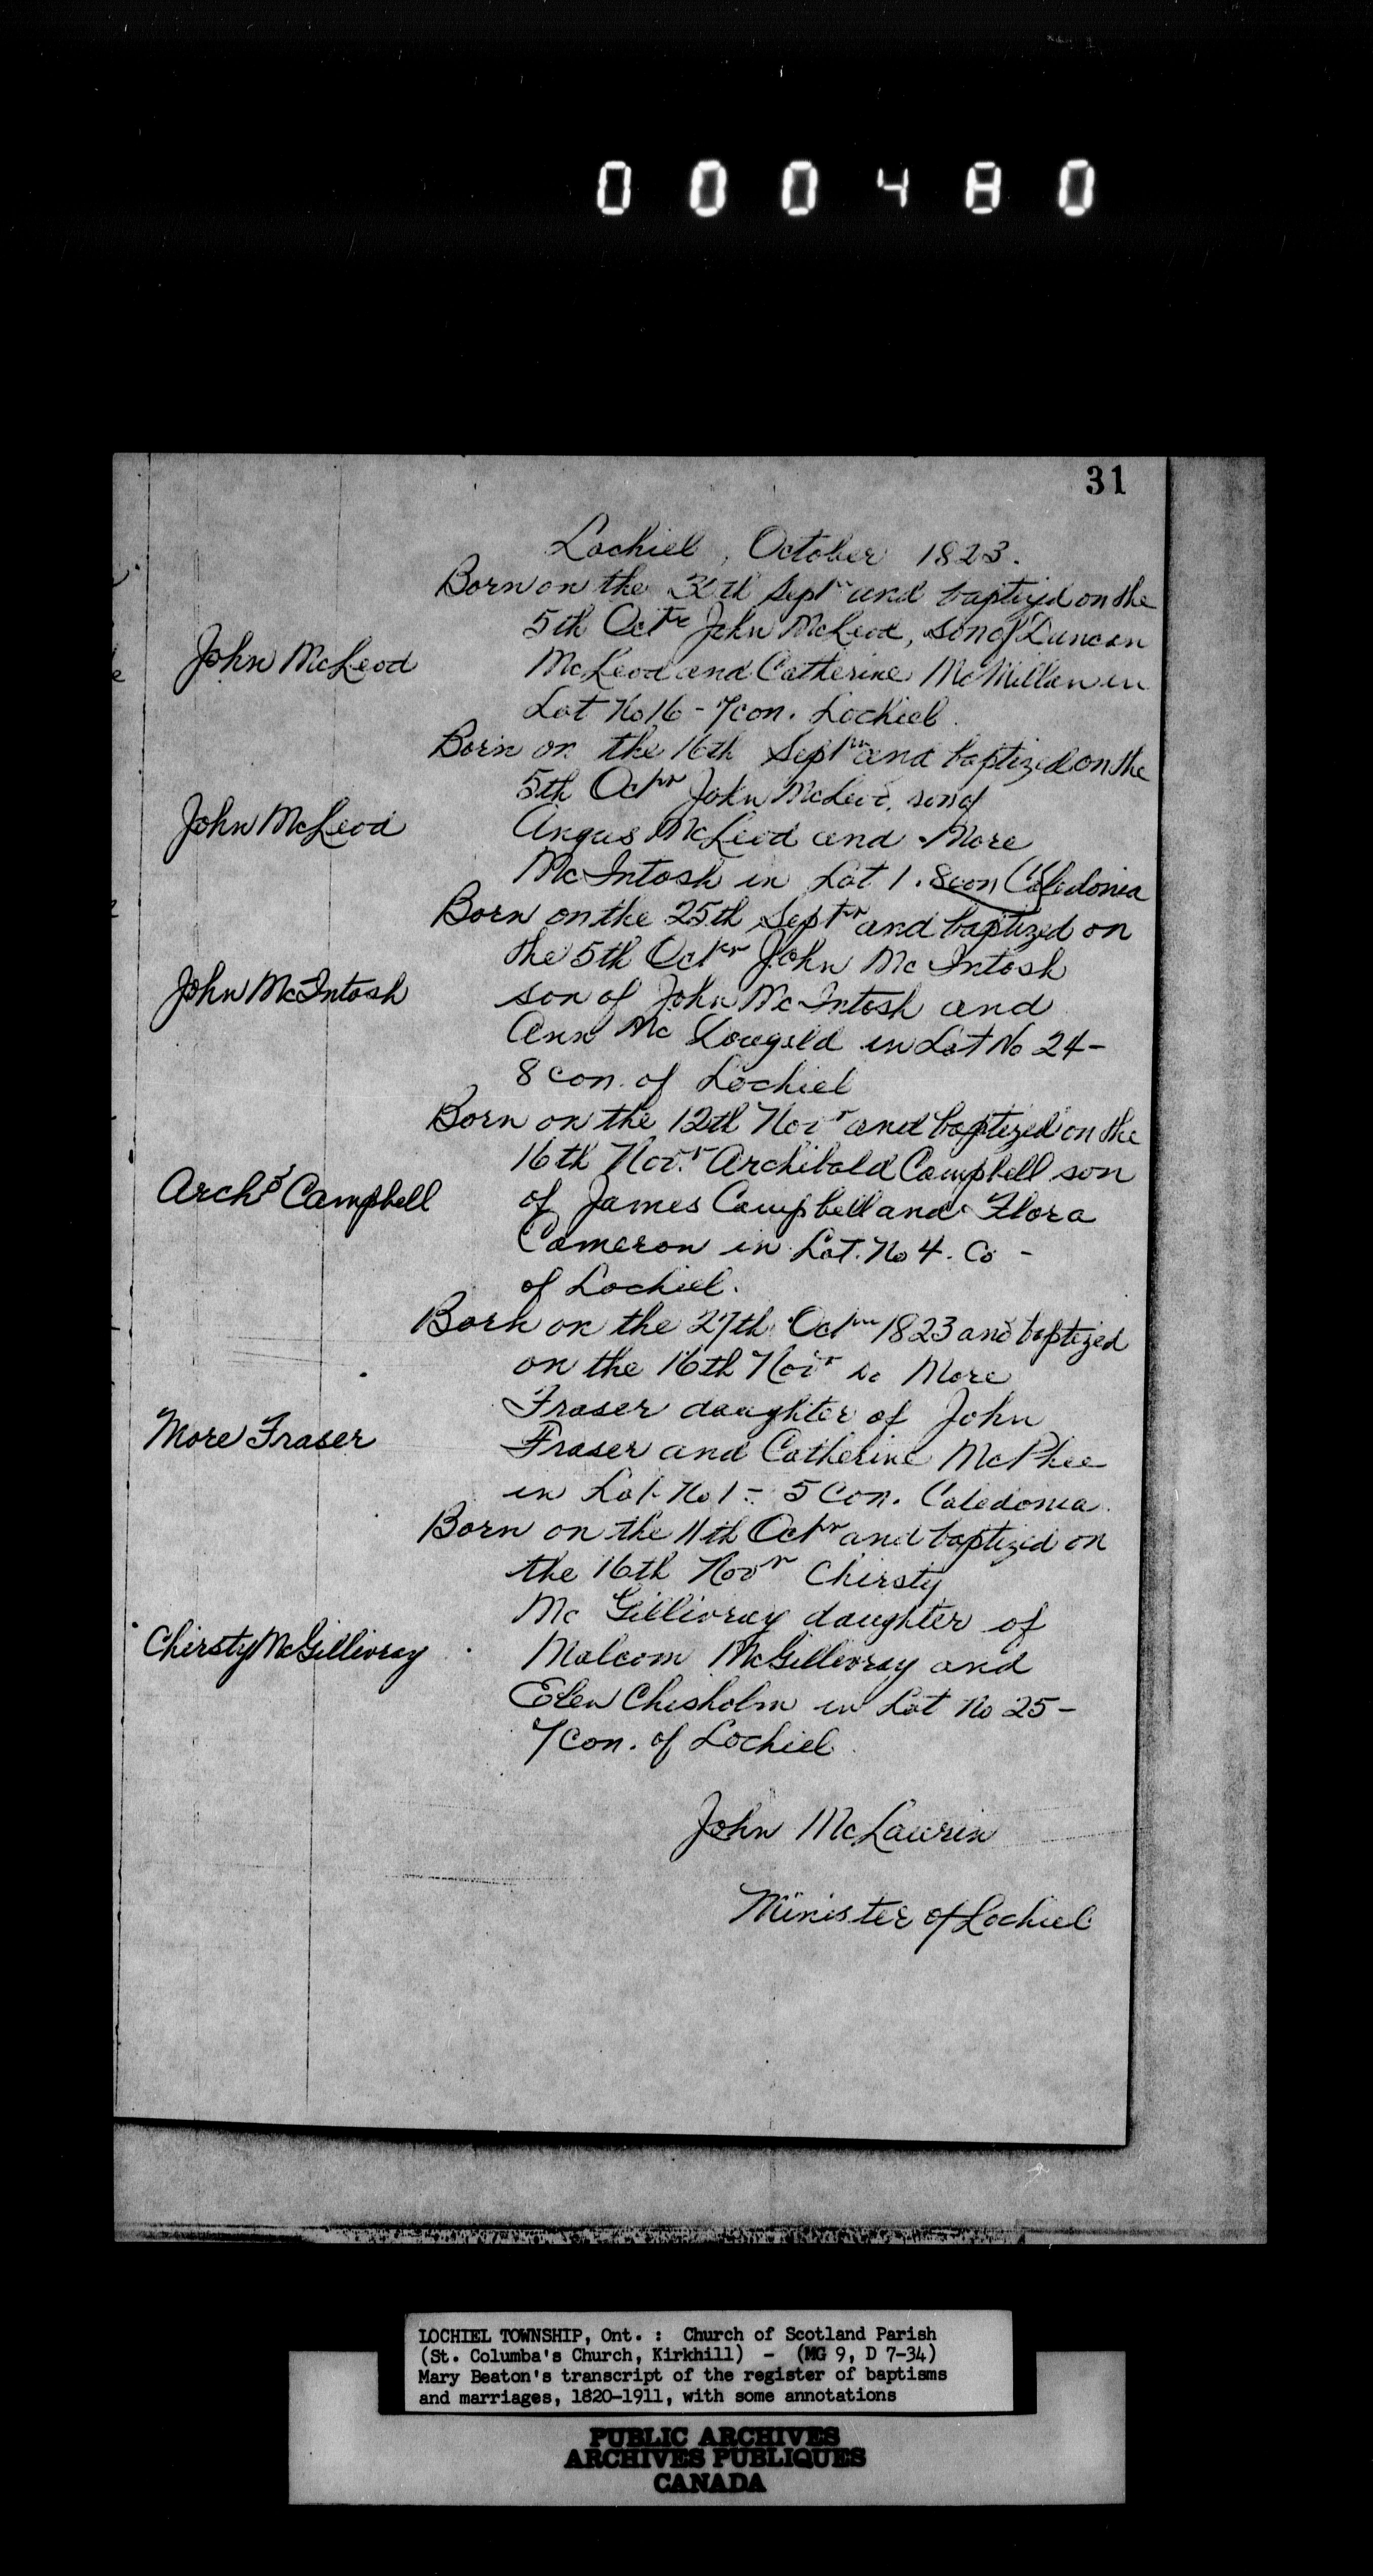 000480
31
Lochiel, October 1823.
Born on the 30th Septr and baptized on the
5th Octr John McLeod, son of Duncan
John McLeod
McLeod and Catherine McMillan in
Lot No 16 - 7 con. Lochiel.
Born on the 16th Septr and baptized on the
5th Octr John McLeod, son of
John McLeod
Angus McLeod and More
McIntosh in Lot 1. 8 con Caledonia
Born on the 25th Septr and baptized on
the 5th Octr John McIntosh
John McIntosh
son of John McIntosh and
Ann McDougald in Lot No 24 -
8 con. of Lochiel
Born on the 12th Novr and baptized on the
16th Novr. Archibald Campbell son
Archd Campbell
of James Campbell and Flora
Cameron in Lot. No 4. Co -
of Lochiel.
Born on the 27th Octr 1823 and baptized
on the 16th Novr More
Fraser daughter of John
More Fraser
Fraser and Catherine McPhee
in Lot No 1 - 5 Con. Caledonia.
Born on the 11th Octr and baptized on
the 16th Novr Chirsty
McGillivray daughter of
Chirsty McGillivray
Malcom McGillivray and
Elen Chisholm in Lot No 25 -
7 Con. of Lochiel.
John McLaurin
Minister of Lochiel
LOCHIEL TOWNSHIP, Ont. : Church of Scotland Parish
(St. Columba's Church, Kirkhill) - (MG 9, D 7-34)
Mary Beaton's transcript of the register of baptisms
and marriages, 1820-1911, with some annotations
PUBLIC ARCHIVES
ARCHIVES PUBLIQUES
CANADA